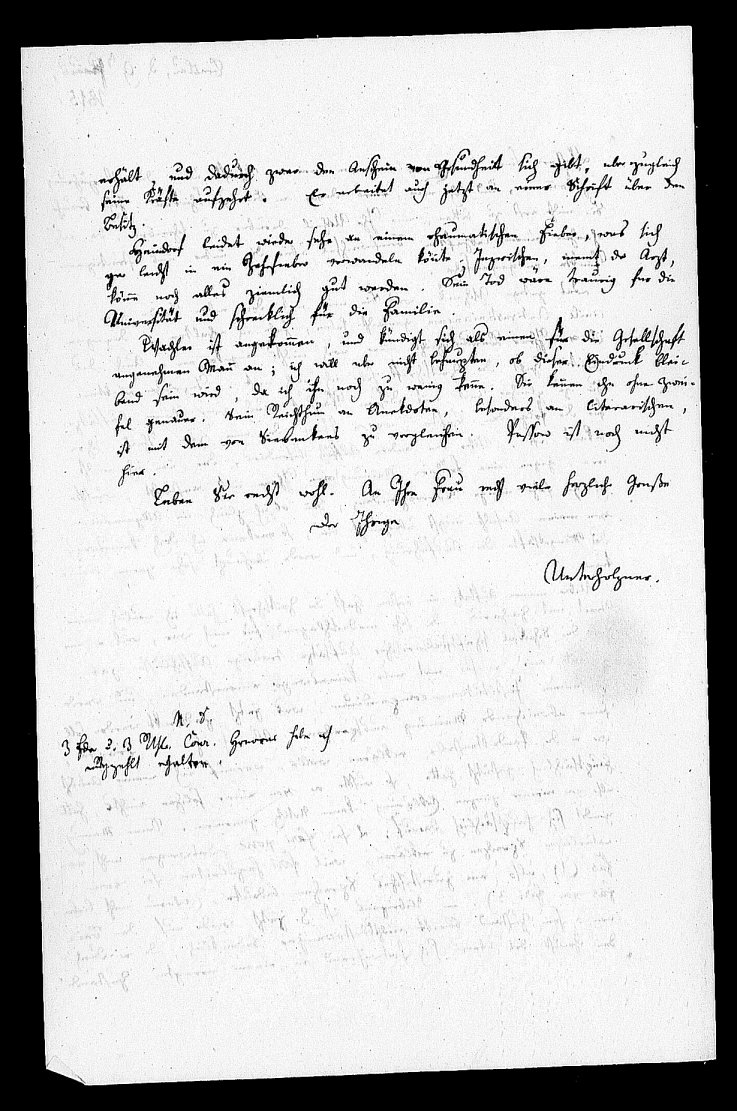 erhält, und dadurch zwar den Anschein von Gesundheit sich gibt, aber zugleich
seine Kräfte aufzehrt. Er arbeitet auch jetzt an einer Schrift über den
Besitz.
Heindorf leidet wieder sehr an einem rheumatischen Fieber, was sich
gar leicht in ein Zehrfieber verwandeln könnte. Inzwischen, meint der Arzt,
könne noch alles ziemlich gut werden. Sein Tod wäre traurig für die
Universität und schrecklich für die Familie.
Wachler ist angekommen, und kündigt sich als einen für die Gesellschaft
angenehmen Mann an; ich will aber nicht behaupten, ob dieser Eindruck blei-
bend sein wird, da ich ihn noch zu wenig kenne. Sie kennen ihn ohne Zwei-
fel genauer. Sein Reichthum an Anekdoten, besonders an literarischen,
ist mit dem von Siebenkees zu vergleichen. Passow ist noch nicht
hier.
Leben Sie recht wohl. An Ihre Frau recht viele herzliche Grüße
Der Ihrige
Unterholzner.
N. S.
3 Fdr u. 3 Rthl. Cour. Honorar habe ich
ausgezahlt erhalten.